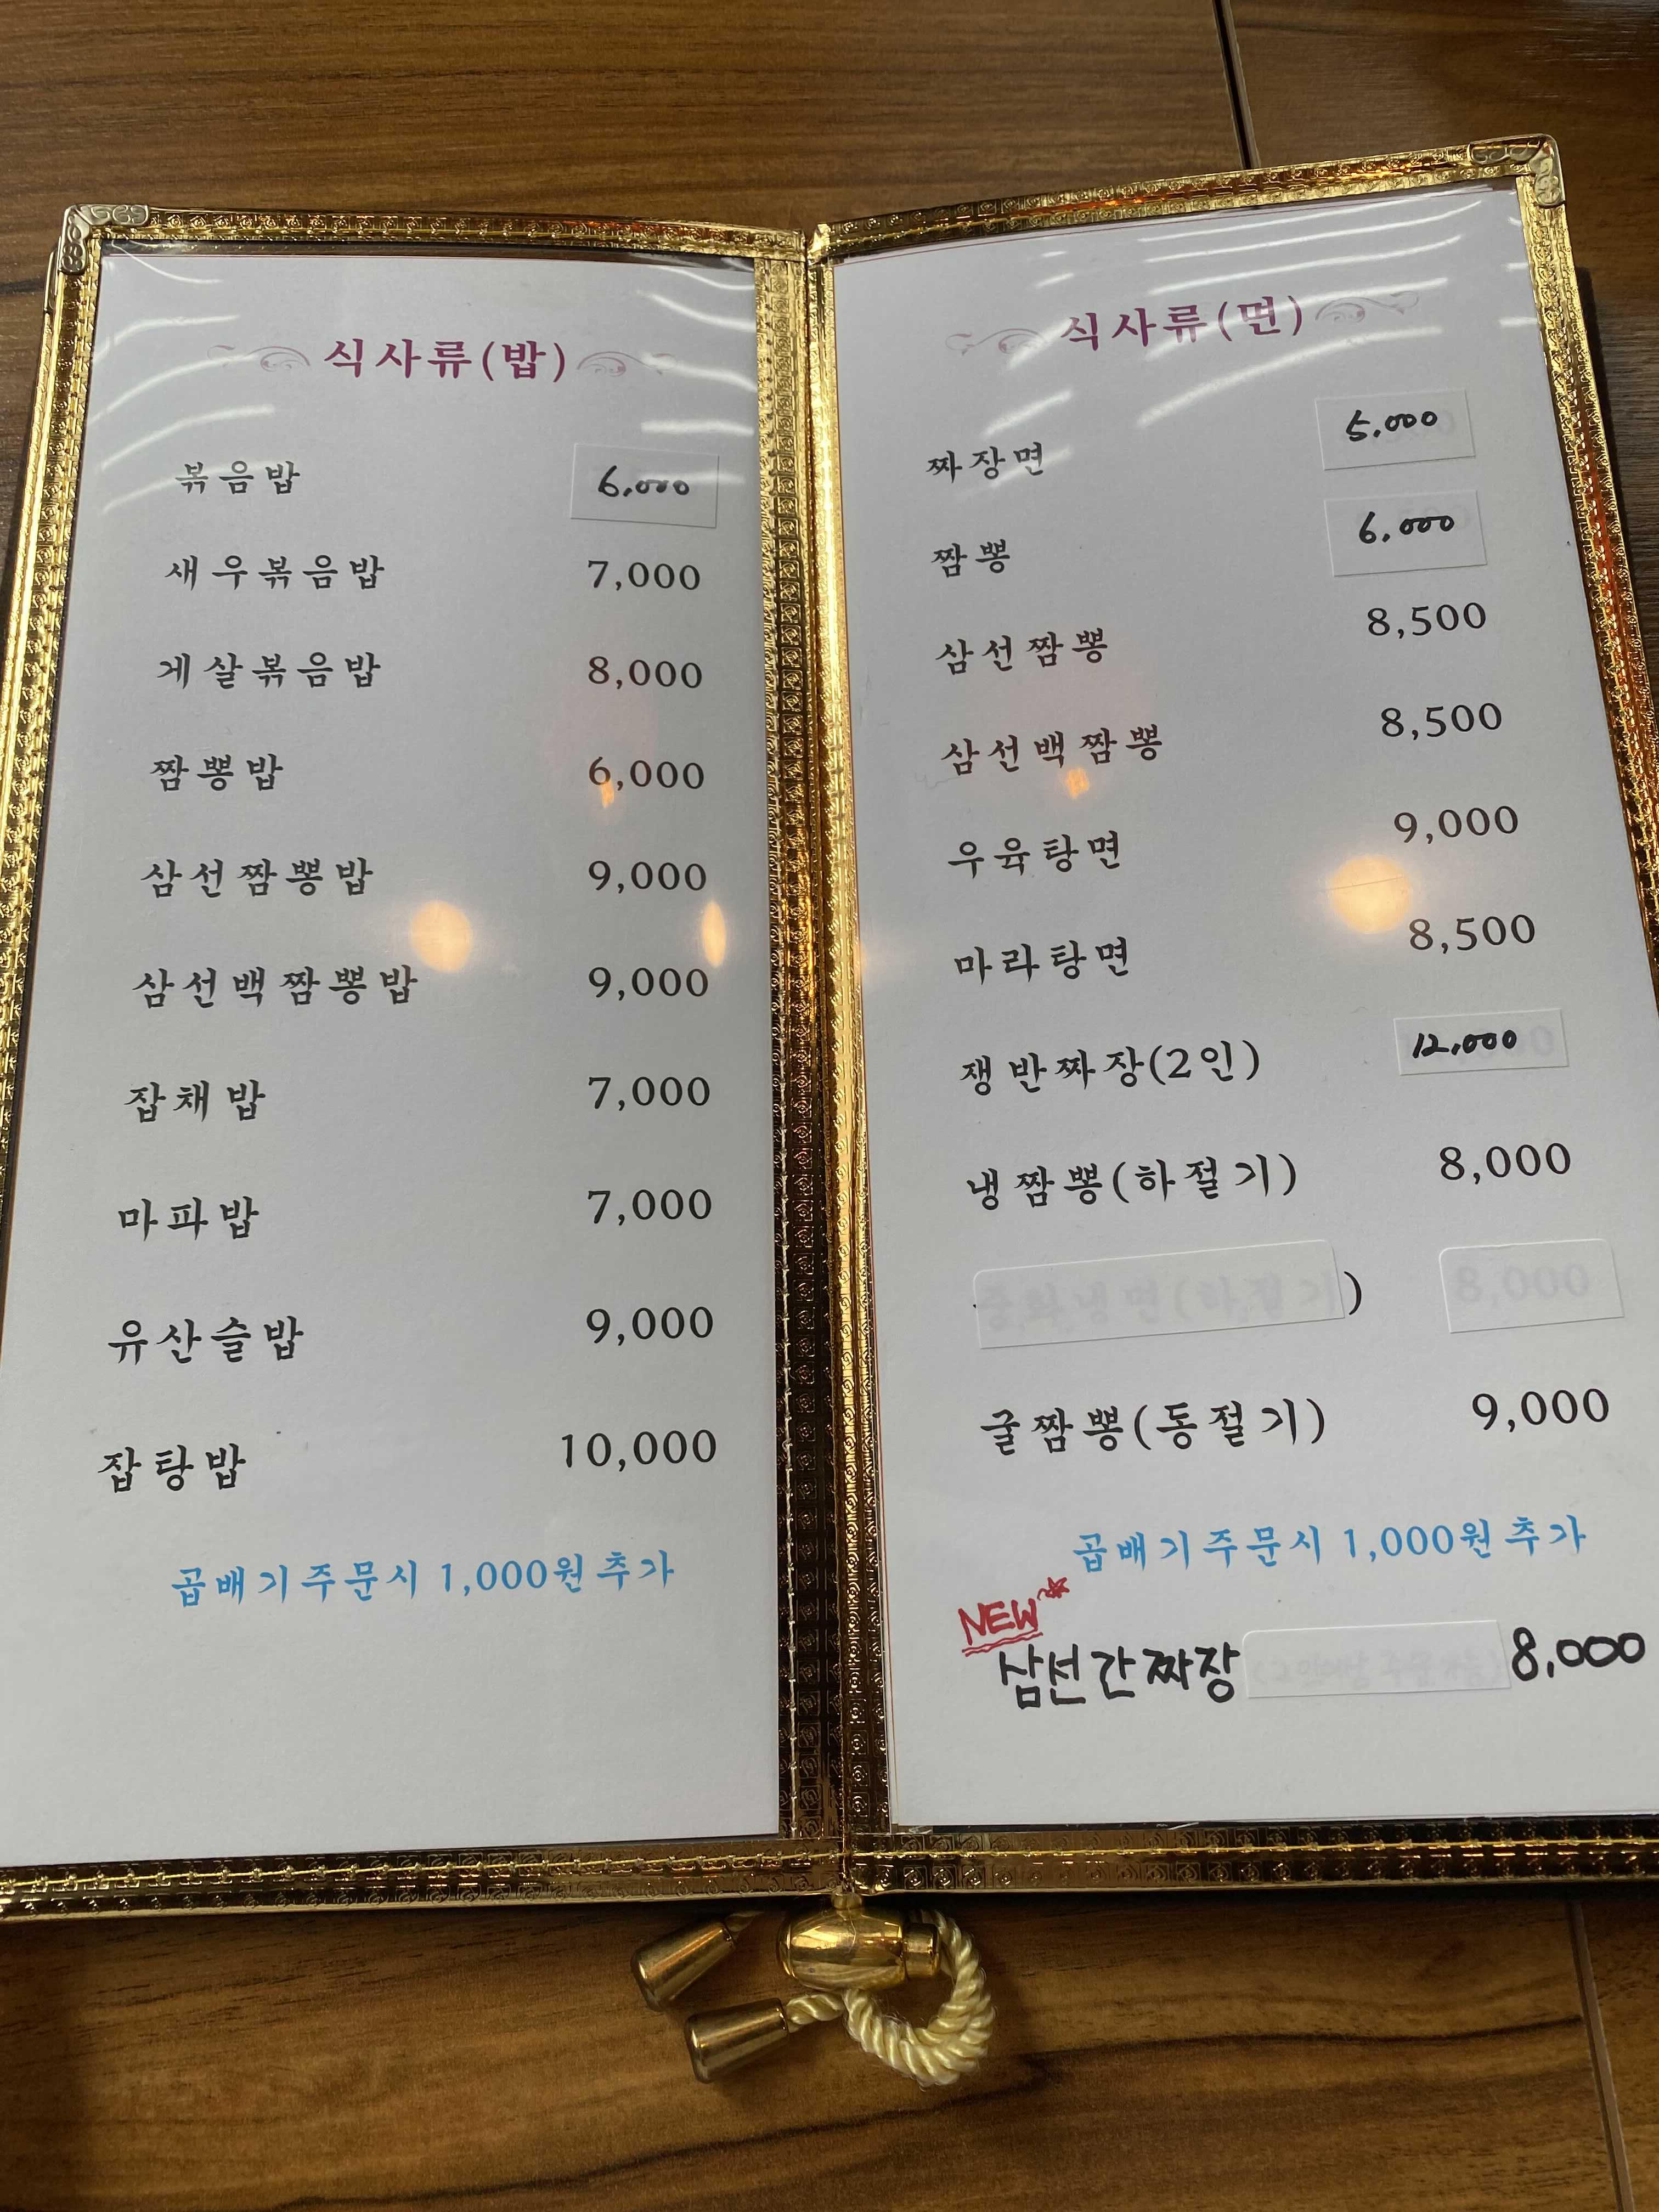 식사류(밥)
볶음밥 6,000
새우볶음밥 7,000
게살볶음밥 8,000
짬뽕밥 6,000
삼선짬뽕밥 9,000
삼선백짬뽕밥 9,000
잡채밥 7,000
마파밥 7,000
유산슬밥 9,000
잡탕밥 10,000
곱배기주문시 1,000원추가
식사류(면)
짜장면 5,000
짬뽕 6,000
삼선짬뽕 8,500
삼선백짬뽕 8,500
우육탕면 9,000
마라탕면 8,500
쟁반짜장(2인) 12,000
냉짬뽕(하절기) 8,000
중화냉면(하절기) 8,000
굴짬뽕(동절기) 9,000
곱배기주문시 1,000원추가
NEW
삼선간짜장 8,000